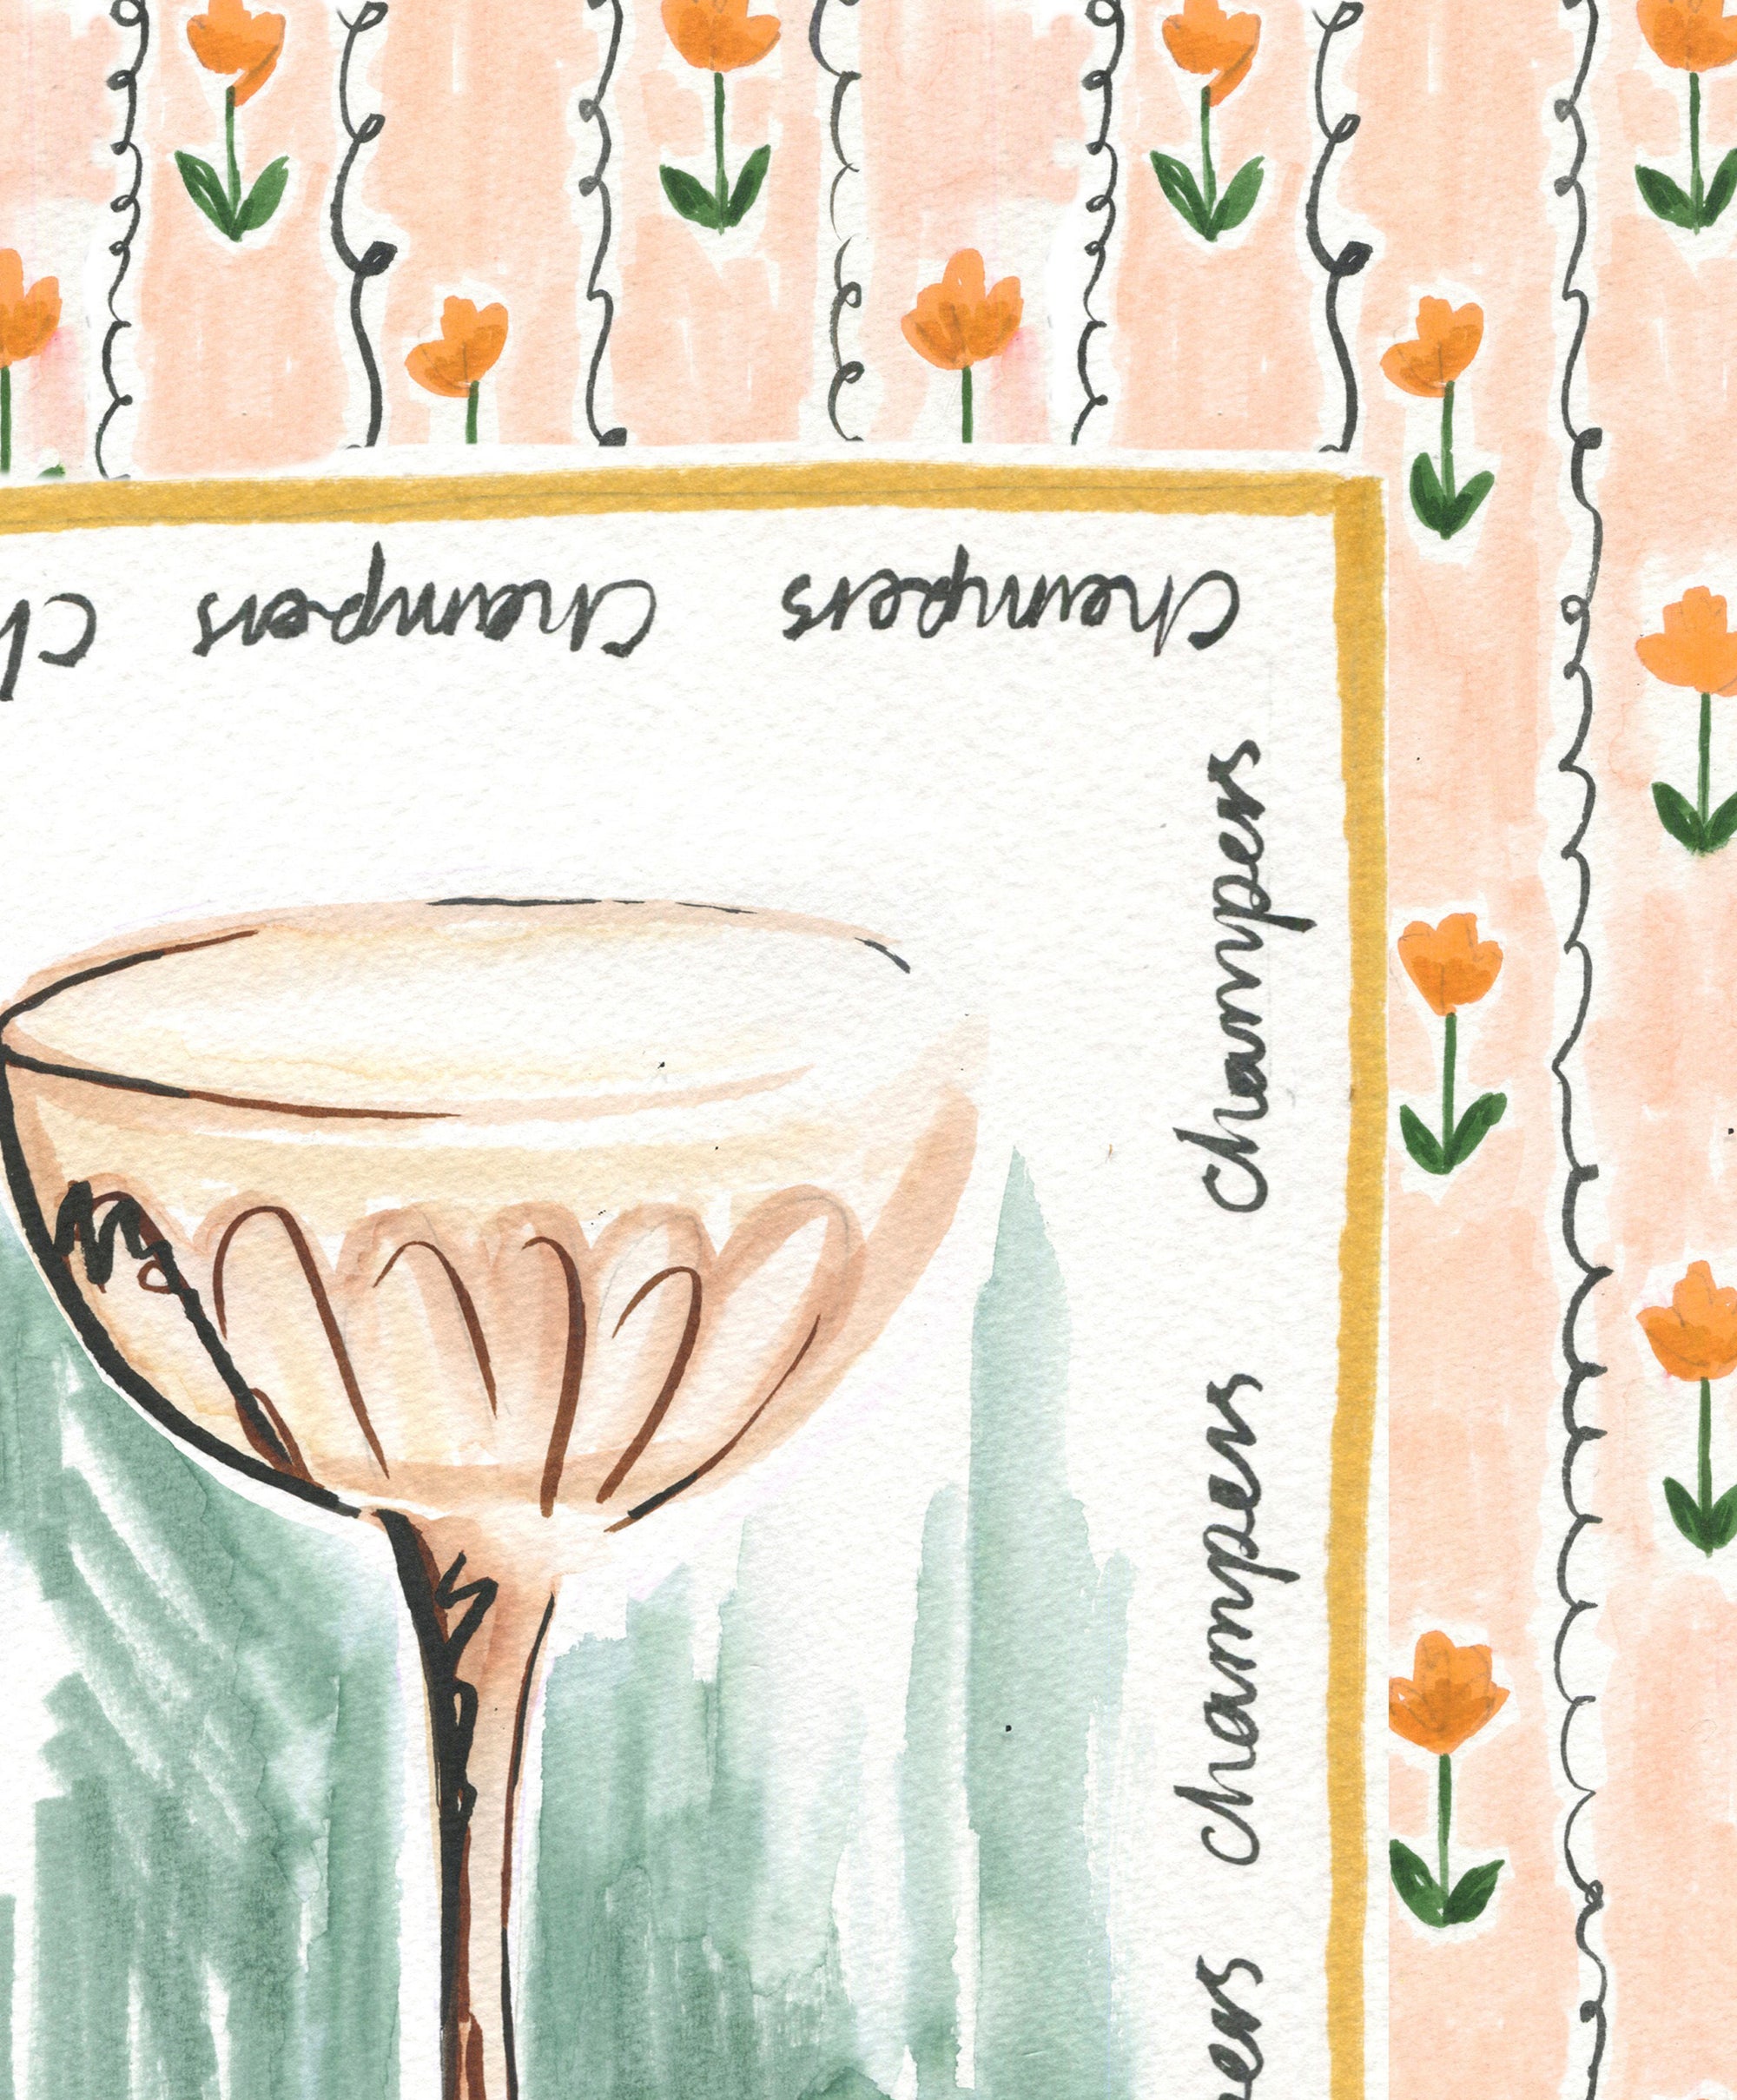 champers champers ch
pers champers champers